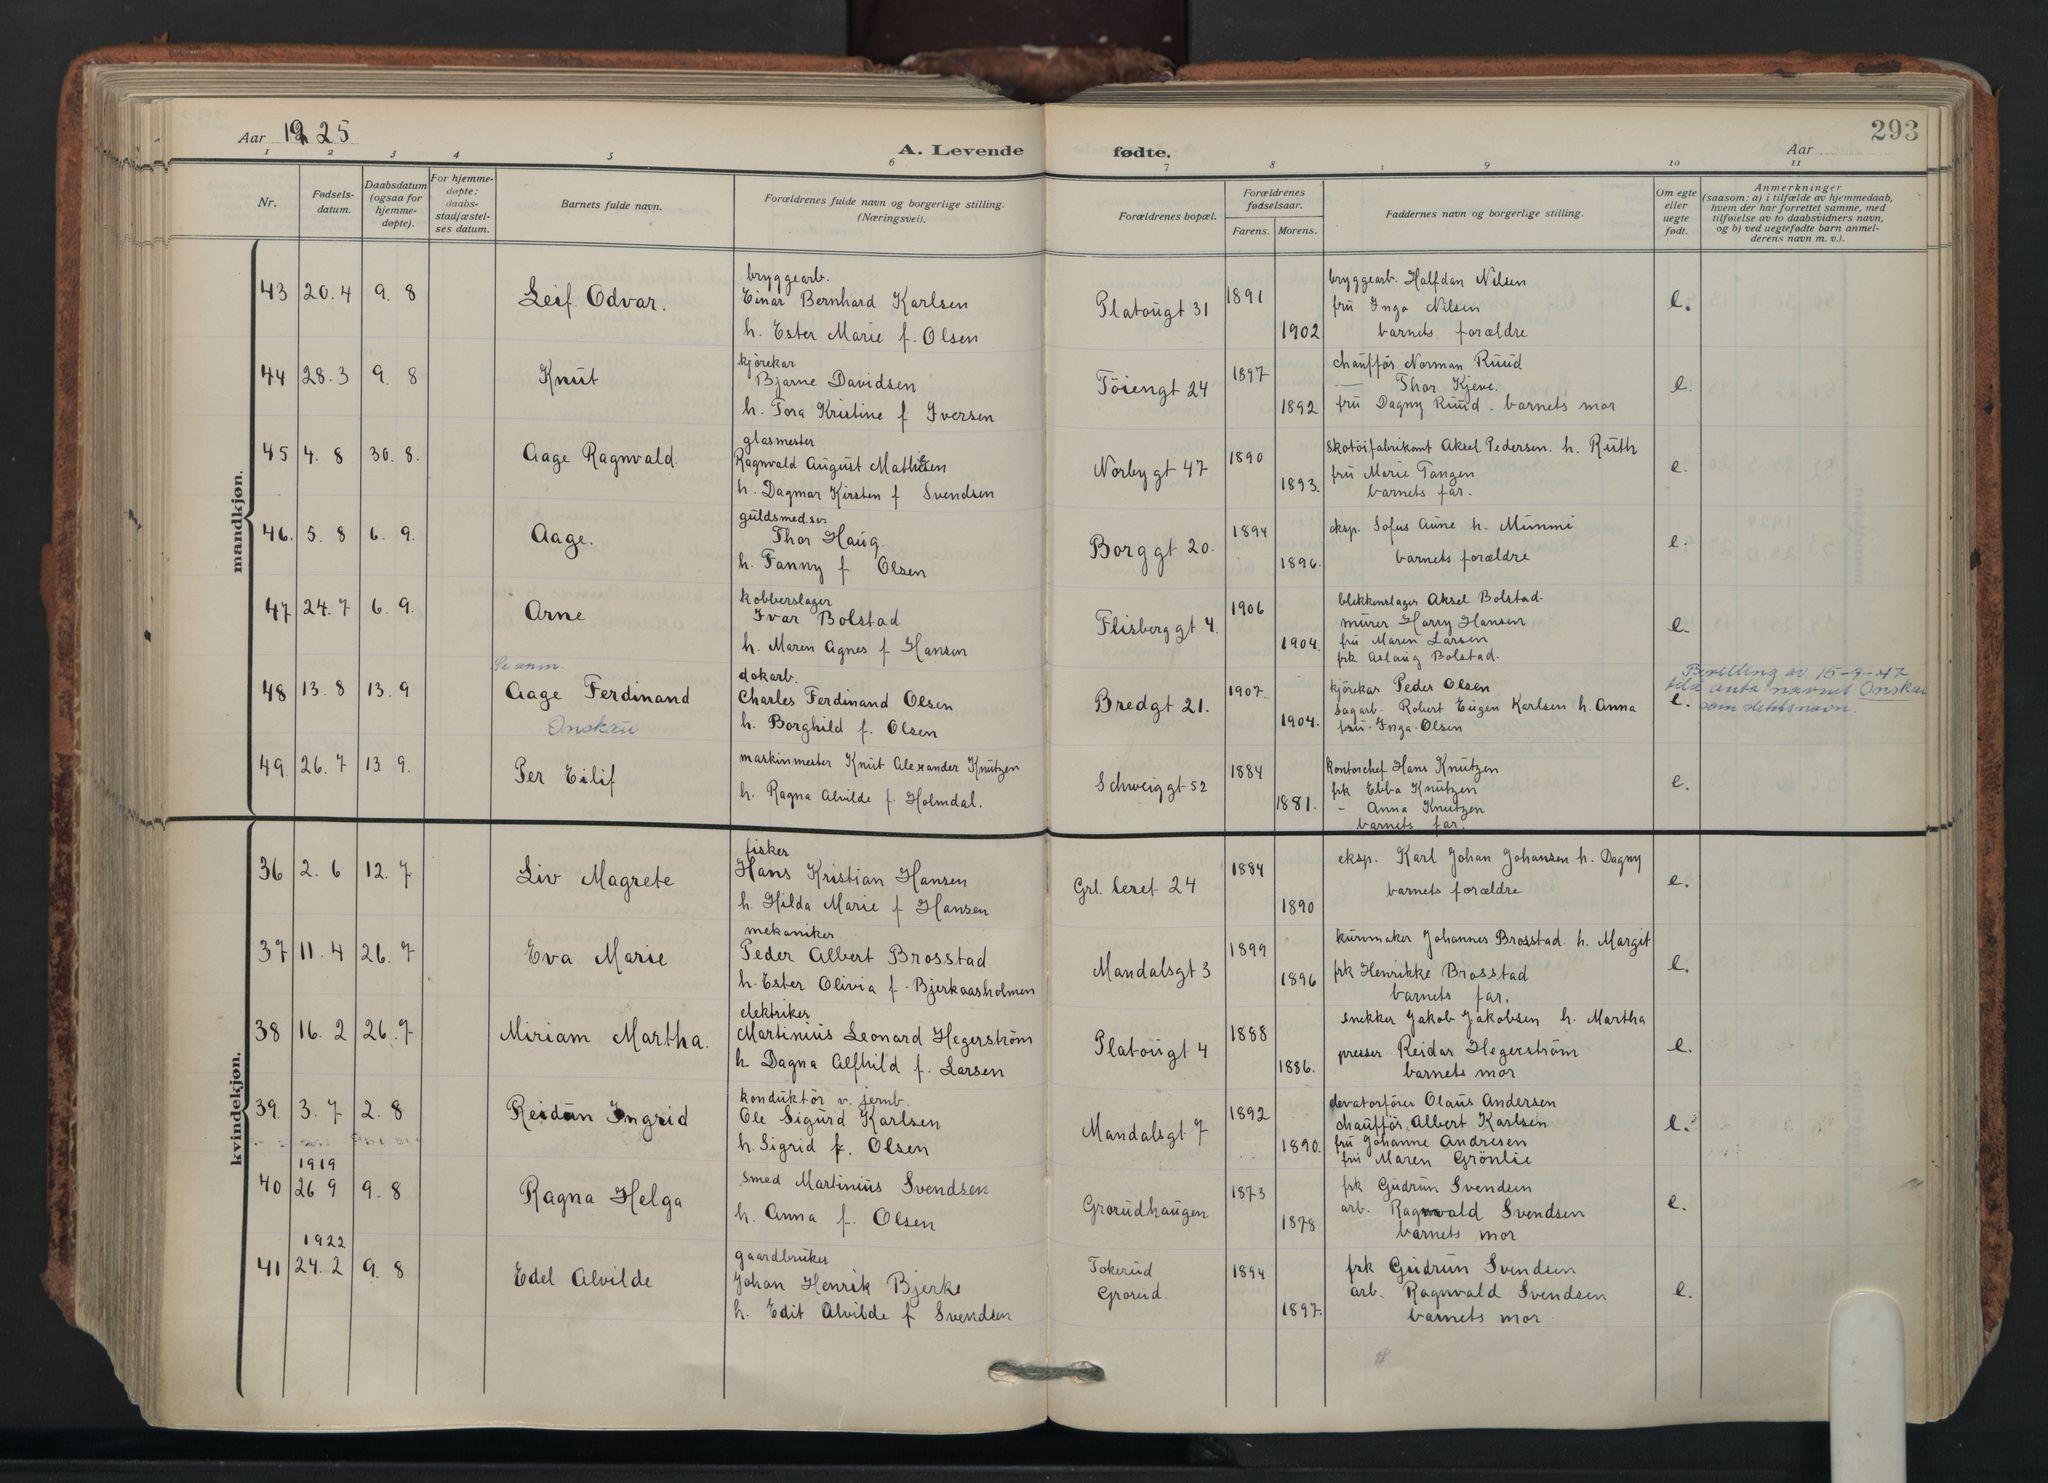 293
Aar 1925
A. Levende fødte.
Aar
1 2 3 4 5 6 7 8 9 10 11
Nr.
Fødsels-
datum.
Daabsdatum
(ogsaa for
hjemme-
døpte).
For hjemme-
døpte:
daabs-
stadfæstel-
ses datum.
Barnets fulde navn.
Forældrenes fulde navn og borgerlige stilling.
(Næringsvei).
Forældrenes bopæl.
Forældrenes
fødselsaar.
Farens. Morens.
Faddernes navn og borgerlige stilling.
Om egte
eller
uegte
født.
Anmerkninger
(saasom: a) i tilfælde av hjemmedaab,
hvem der har forrettet samme, med
tilføielse av to daabsvidners navn,
og b) ved uegtefødte barn anmel-
derens navn m. v.).
mandkjøn.
43 20.4 9.8 Leif Odvar.
bryggearb.
Einar Bernhard Karlsen
h. Ester Marie f. Olsen
Platougt 31 1891 1902
bryggearb. Halfdan Nilsen
fru Inga Nilsen
barnets forældre
e.
44 28.3 9.8 Knut
kjörekar
Bjarne Davidsen
h. Tora Kristine f Iversen
Töiengt 24 1897 1892
chaufför Norman Ruud
— Thor Kjeve.
fru Dagny Ruud. barnets mor
e.
45 4.8 30.8. Aage Ragnvald.
glasmester
Ragnvald August Mathisen
h. Dagmar Kirsten f Svendsen
Norbygt 47 1890 1893.
skotöifabrikant Aksel Pedersen. h. Ruth
fru Marie Tangen
barnets far.
e.
46. 5.8 6.9. Aage.
guldsmedsv.
Thor Haug.
h. Fanny f Olsen
Borggt 20. 1894 1896.
eksp. Sofus Aune h. Mimmi
barnets forældre
e.
47 24.7 6.9. Arne
kobberslager
Ivar Bolstad
h. Maren Agnes f Hansen
Flisberggt 4. 1906 1904.
blikkenslager Aksel Bolstad.
murer Harry Hansen
fru Maren Larsen
frk Aslaug Bolstad.
e.
Se anm.
48 13.8 13.9 Aage Ferdinand
Onskau
dokarb.
Charles Ferdinand Olsen
h. Borghild f. Olsen
Bredgt 21. 1907 1904.
kjörekar Peder Olsen
sagarb. Robert Eugen Karlsen h. Anna
fru Inga Olsen
e.
Bevilling av 15-9-47
til å anta navnet Onskau
som slektsnavn.
49. 26.7 13.9. Per Eilif
maskinmester Knut Alexander Knutzen
h. Ragna Alvilde f. Holmdal.
Schweiggt 52 1884 1881.
kontorchef Hans Knutzen
frk Ebba Knutzen
- Anna Knutzen
barnets far.
e.
kvindekjøn.
36 2.6 12.7 Liv Magrete
fisker
Hans Kristian Hansen
h. Hilda Marie f Hansen
Grl. leret 24 1884 1890
eksp. Karl Johan Johansen h. Dagny
barnets forældre
e.
37 11.4 26.7 Eva Marie
mekaniker
Peder Albert Brosstad
h. Ester Olivia f. Bjerkaasholmen
Mandalsgt 3 1899 1896
kurvmaker Johannes Brosstad. h. Margit
frk Henrikke Brosstad
barnets far.
e.
38 16.2 26.7 Miriam Martha.
elektriker
Martinius Leonard Hegerström
h Dagna Alfhild f. Larsen
Platougt 4 1888 1886.
snekker Jakob Jakobsen h. Martha
presser Reidar Hegerström
barnets mor
e.
39. 3.7 2.8 Reidun Ingrid
konduktör v. jernb.
Ole Sigurd Karlsen
h. Sigrid f. Olsen
Mandalsgt 7 1892 1890.
elevatorförer Olaus Andersen
chaufför Albert Karlsen
fru Johanne Andresen
fru Maren Grönlie
e.
40 1919 26 9 9.8 Ragna Helga
smed Martinius Svendsen
h. Anna f. Olsen
Grorudhaugen 1873 1878
frk Gudrun Svendsen
arb. Ragnvald Svendsen
barnets mor
e.
41 1922 24.2 9.8 Edel Alvilde
gaardbruker
Johan Henrik Bjerke
h. Edit Alvilde f Svendsen
Tokerud
Grorud. 1894 1897.
frk Gudrun Svendsen
arb. Ragnvald Svendsen
barnets mor
e.